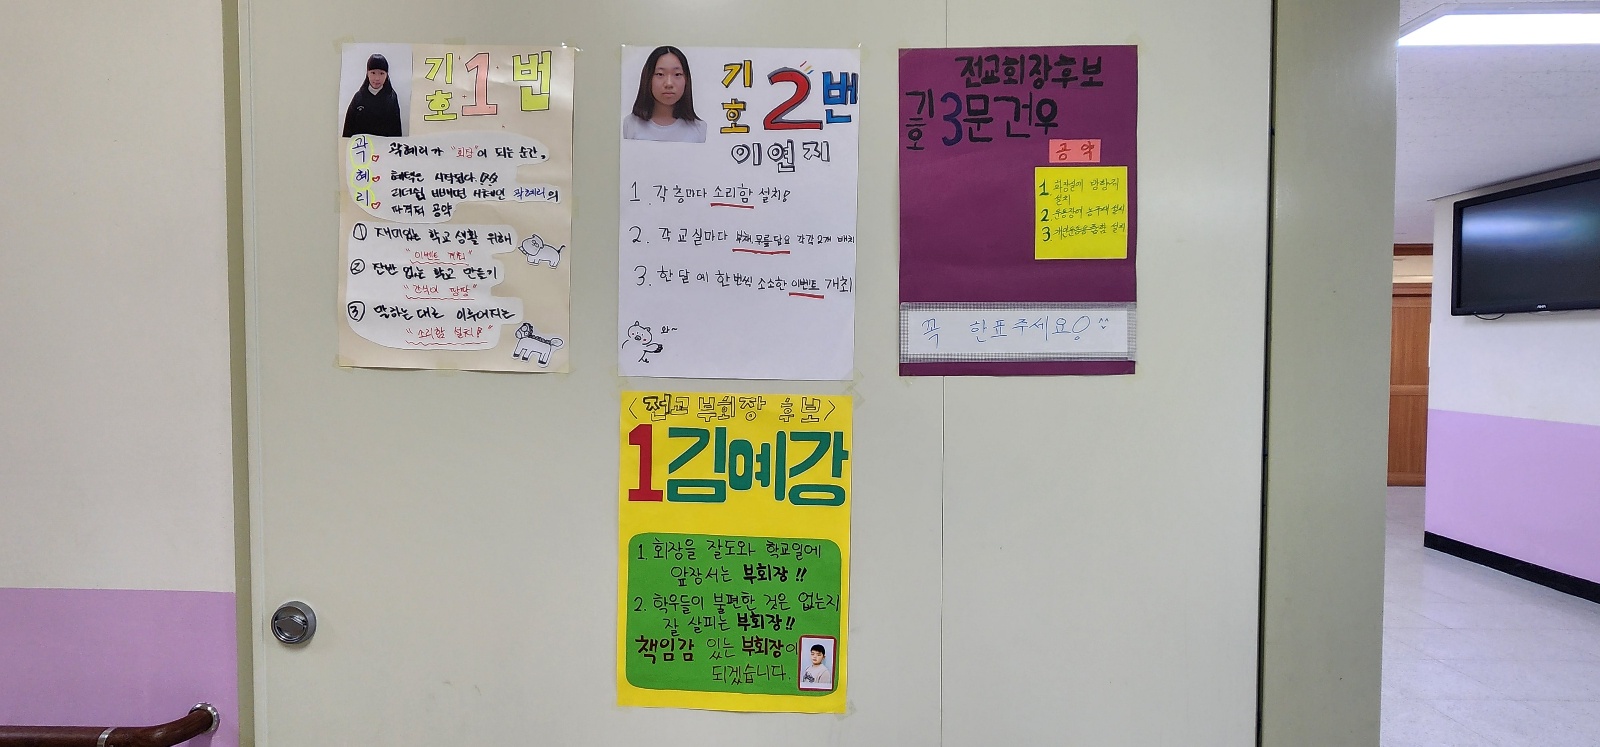 기호 1번
곽 곽혜리가 "회장"이 되는 순간,
혜 혜택은 시작된다.
리 리더쉽 빼면 시체인 곽혜리의
파격적 공약
① 재미있는 학교생활 위해
"이벤트 개최"
② 잔반 없는 학교 만들기
"간식이 팡팡"
③ 말하는대로 이루어지는
"소리함 설치!"
기호 2번
이연지
1. 각 층마다 소리함 설치!
2. 각 교실마다 부채, 무릎담요 각각 2개 배치
3. 한 달에 한번씩 소소한 이벤트 개최
와~
전교회장후보
기호 3 문건우
공약
1 화장실에 방향제
설치
2. 운동장에 농구대 설치
3.
꼭 한표 주세요! ^^
<전교 부회장 후보>
1 김예강
1. 회장을 잘도와 학교일에
앞장서는 부회장!!
2. 학우들이 불편한 것은 없는지
잘 살피는 부회장!!
책임감 있는 부회장이
되겠습니다.